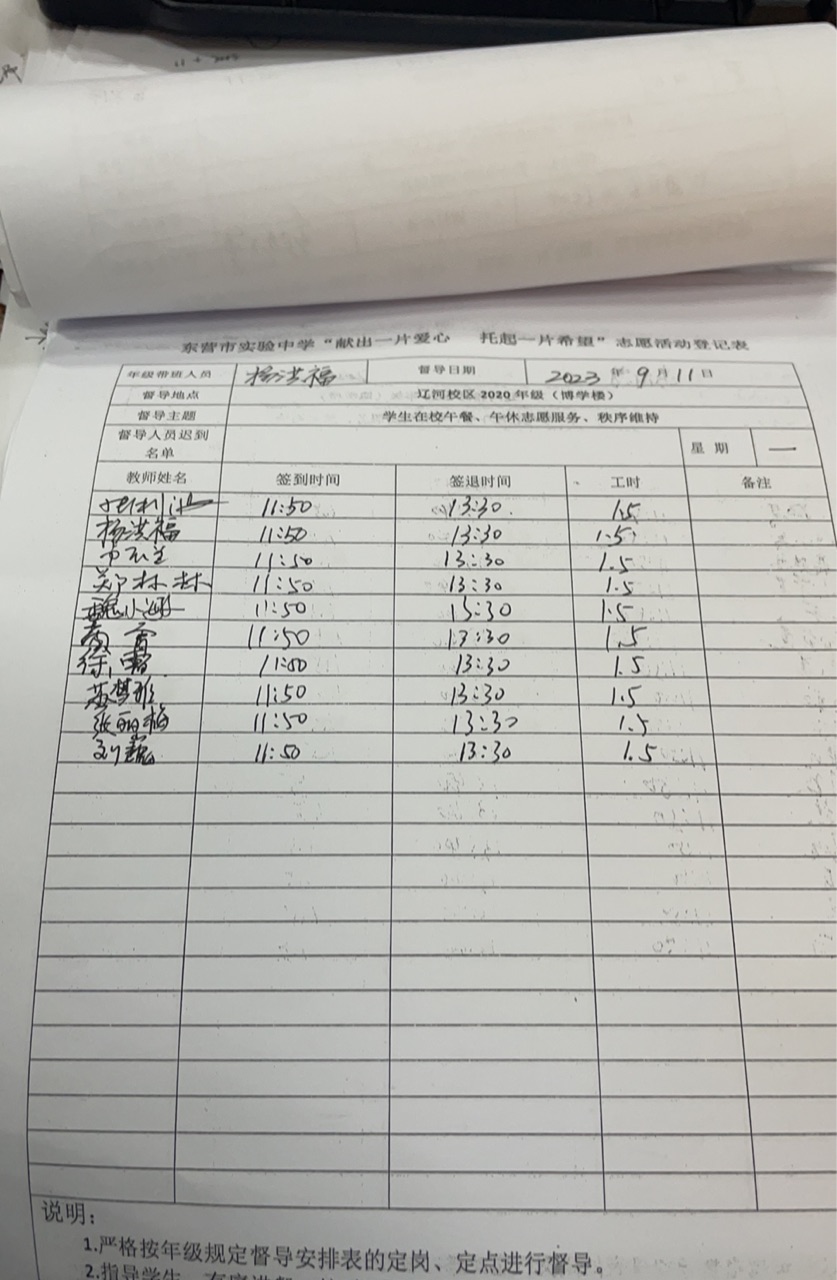 东营市实验中学“献出一片爱心 托起一片希望”志愿活动登记表
年级带班人员 杨洪福 督导日期 2023 年 9 月 11 日
督导地点 辽河校区 2020 年级（博学楼）
督导主题 学生在校午餐、午休志愿服务、秩序维持
督导人员迟到名单 星期 一
教师姓名 签到时间 签退时间 工时 备注
11:50 13:30 1.5
杨洪福 11:50 13:30 1.5
11:50 13:30 1.5
郑林林 11:50 13:30 1.5
11:50 13:30 1.5
11:50 13:30 1.5
13:30 1.5
苏梦雅 11:50 13:30 1.5
张丽梅 11:50 13:30 1.5
刘巍 11:50 13:30 1.5
说明：
1.严格按年级规定督导安排表的定岗、定点进行督导。
2.指导学生